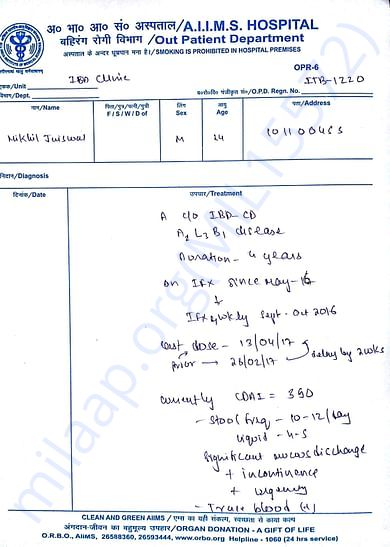 अ० भा० आ० सं० अस्पताल/A.I.I.M.S. HOSPITAL
बहिरंग रोगी विभाग /Out Patient Department
अस्पताल के अन्दर धूम्रपान मना है।/SMOKING IS PROHIBITED IN HOSPITAL PREMISES
OPR-6
IBD Clinic
ITB-1220
एकक/Unit
विभाग/Dept.
ब०रो०वि० पंजीकृत सं०/O.P.D. Regn. No.
नाम/Name
पिता/पुत्र/पत्नी/पुत्री
F/S/W/D of
लिंग
Sex
आयु
Age
पता/Address
Nikhil Jaiswal
M
24
101100453
निदान/Diagnosis
दिनांक/Date
उपचार/Treatment
A c/o IBD-CD
A2 L3 B1 disease
Duration - 4 years
on IFX since May-16
+
IFX 4 wkly Sept-Oct 2016
Last dose - 13/04/17
Prior → 26/02/17
delay by 2 wks
Currently CDAI = 390
- Stool freq - 10-12/day
liquid - 4-5
Significant mucus discharge
+ incontinence
+ urgency
- Trace blood (+)
milaap.org
CLEAN AND GREEN AIIMS / एम्स का यही संकल्प, स्वच्छता से काया कल्प
अंगदान-जीवन का बहुमूल्य उपहार/ORGAN DONATION - A GIFT OF LIFE
O.R.B.O., AIIMS, 26588360, 26593444, www.orbo.org Helpline - 1060 (24 hrs service)